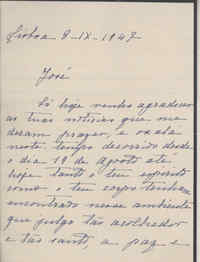 Lisboa 8-IX-1947
José
Só hoje venho agradecer
as tuas noticias que me
deram prazer, e oxalá
neste tempo decorrido desde
o dia 19 de Agosto até
hoje tanto o teu espirito
como o teu corpo tenham
encontrado nesse ambiente
que julgo tão acolhedor
e tão santo, a paz e